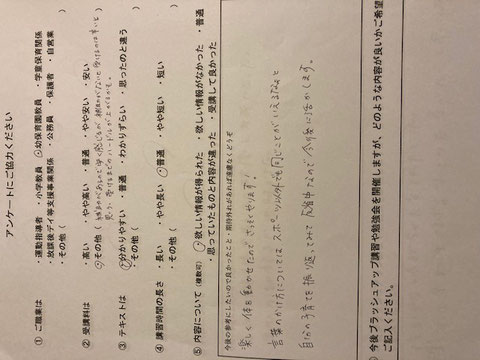 アンケートにご協力ください
① ご職業は ・運動指導者 ・小学教員 ・幼保育園教員 ・学童保育関係
・放課後デイ等支援事業関係 ・公務員 ・保護者 ・自営業
・その他（ ）
② 受講料は ・高い ・やや高い ・普通 ・やや安い ・安い
・その他（
③ テキストは ・分かりやすい ・普通 ・わかりずらい ・思ったのと違う
・その他（ ）
④ 講習時間の長さ ・長い ・やや長い ・普通 ・やや短い ・短い
・その他（ ）
⑤ 内容について（複数可） ・欲しい情報が得られた ・欲しい情報がなかった ・普通
・思っていたものと内容が違った ・受講して良かった
今後の参考にしたいので良かったこと・期待外れがあれば遠慮なくどうぞ
楽しく体を動かせたので さっそくやります！
言葉のかけ方については スポーツ以外でも同じことがいえるなぁと
自分の子育てを振り返ってみて 反省中なので今後に活かします。
今後ブラッシュアップ講習や勉強会を開催しますが、どのような内容が良いかご希望
ご記入ください。